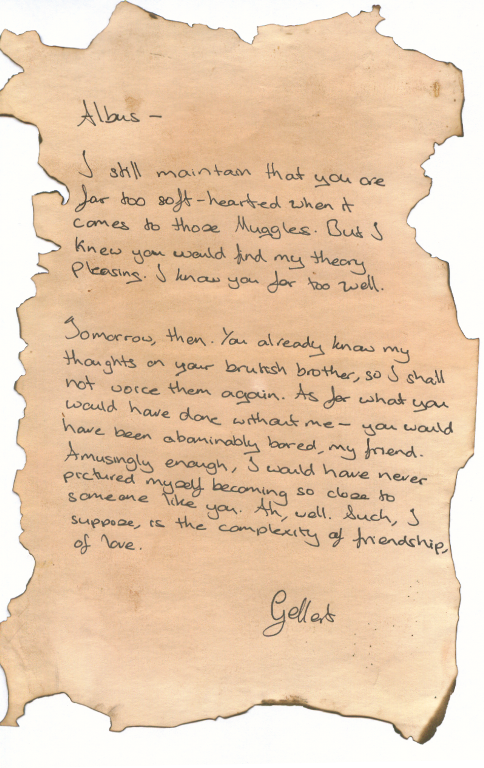 Albus –
I still maintain that you are
far too soft-hearted when it
comes to those Muggles. But I
knew you would find my theory
pleasing. I know you far too well.
Tomorrow, then. You already know my
thoughts on your brutish brother, so I shall
not voice them again. As for what you
would have done without me – you would
have been abominably bored, my friend.
Amusingly enough, I would have never
pictured myself becoming so close to
someone like you. Ah, well. Such, I
suppose, is the complexity of friendship,
of love.
Gellert